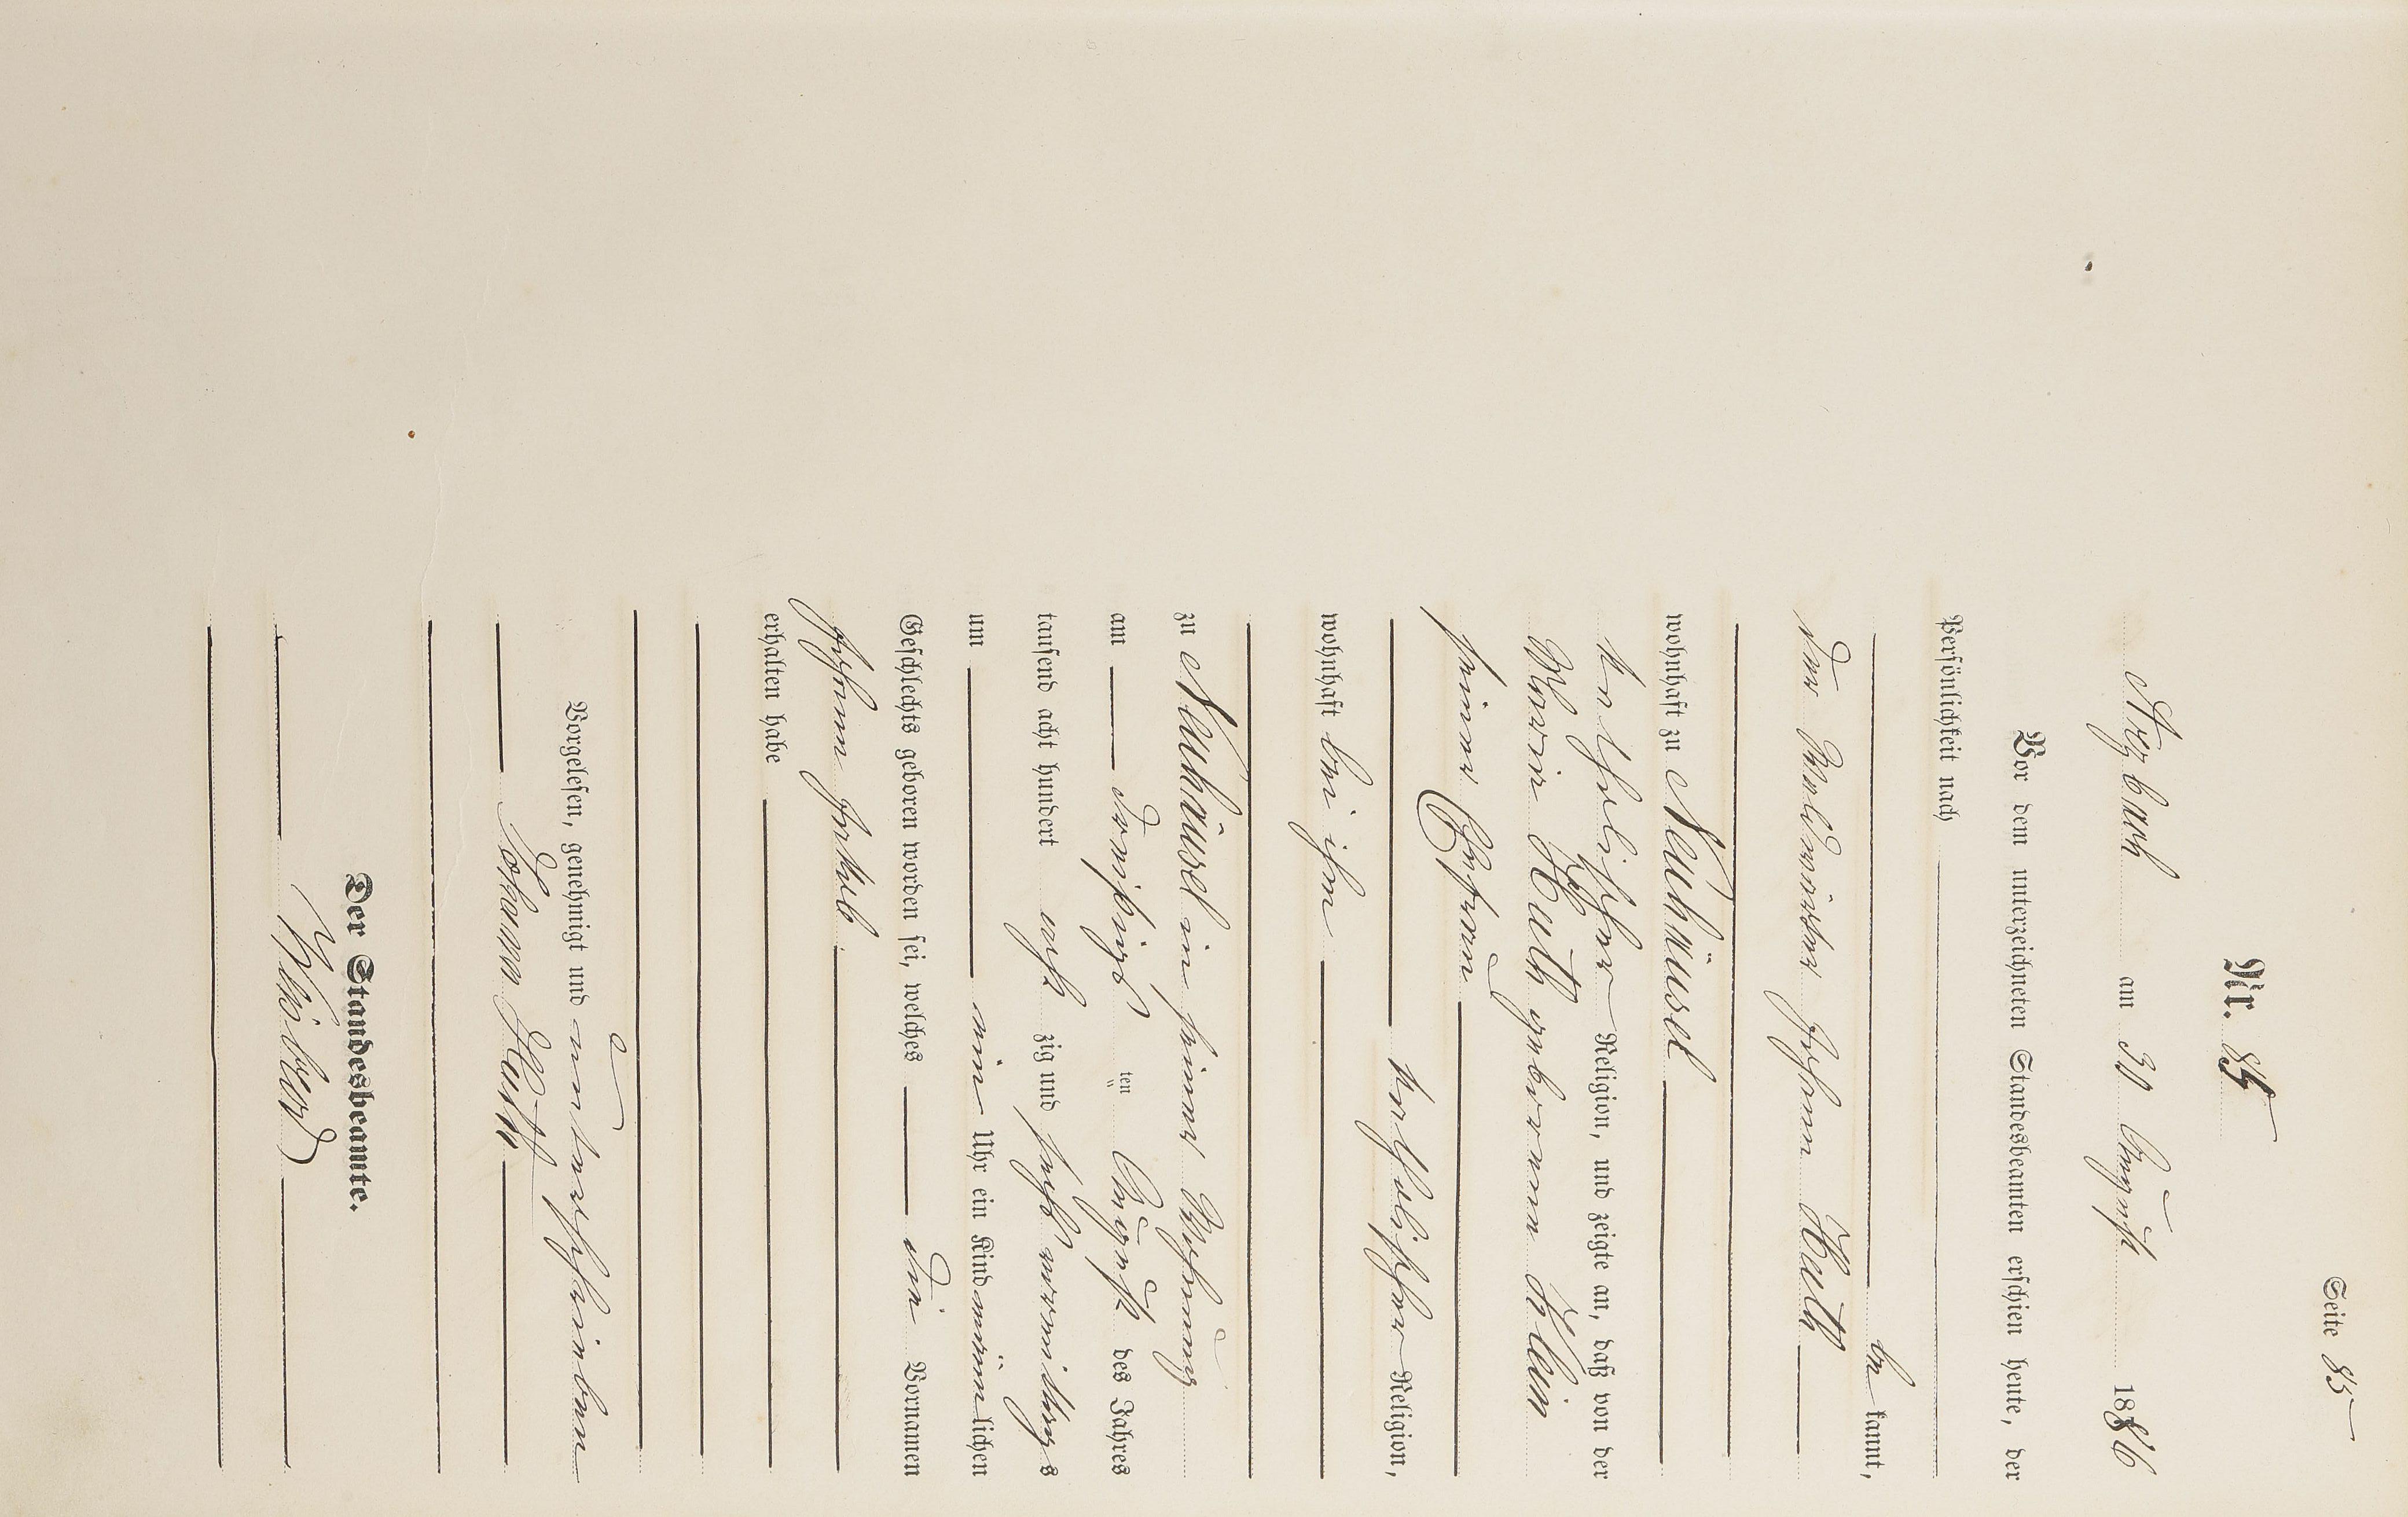 Seite 85
Nr. 85
Arzbach am 30 August 1886
Vor dem unterzeichneten Standesbeamten erschien heute, der
Persönlichkeit nach
be kannt,
der Waldwärter Johann Huth
wohnhaft zu Neuhäusel
katholischer Religion, und zeigte an, daß von der
Maria Huth geborenen Klein
seiner Ehefrau
katholischer Religion,
wohnhaft bei ihm
zu Neuhäusel in seiner Wohnung
am dreißigst ten August des Jahres
tausend acht hundert acht zig und sechs vormittags
um ein Uhr ein Kind männ lichen
Geschlechts geboren worden sei, welches die Vornamen
Johann Jakob
erhalten habe
Vorgelesen, genehmigt und unterschrieben
Johann Huth
Der Standesbeamte.